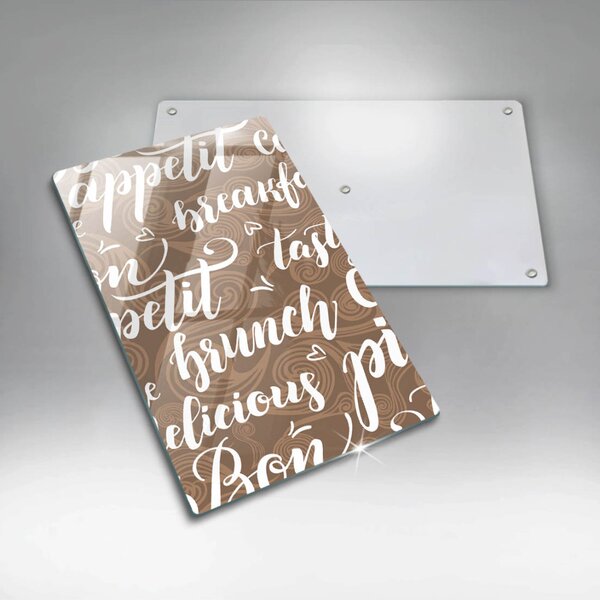 appetit
breakfa
on tast
petit
brunch
elicious pi
Bon